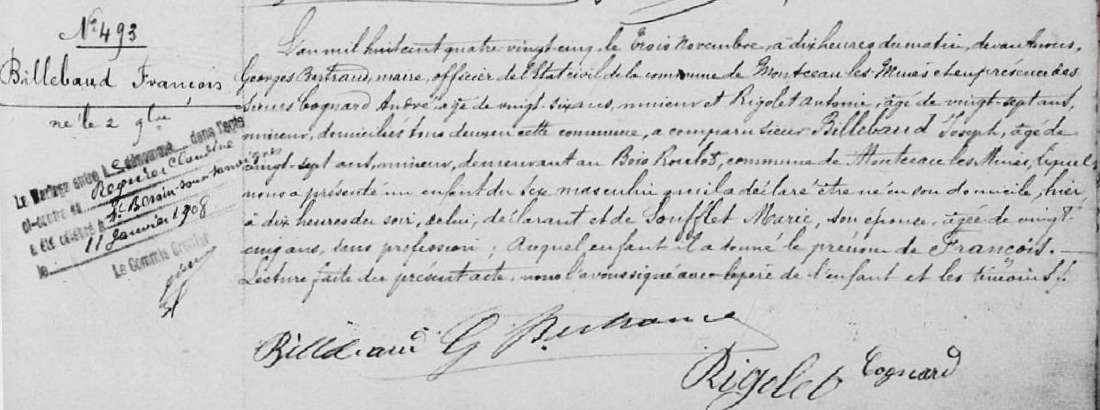 N° 493
Billebaud François
né le 2 9bre
Le Mariage entre le dénommé dans l'acte
ci-contre et Claudine
a été célébré à St Berain-sous-Sanvignes
le 11 Janvier 1908
Le Commis Greffier
L'an mil huit cent quatre-vingt-cinq, le trois novembre, à dix heures du matin, devant nous,
Georges Bertrand, maire, officier de l'Etat civil de la commune de Montceau-les-Mines et en présence des
sieurs Cognard André âgé de vingt-six ans, mineur et Rigolet Antonin, âgé de vingt-sept ans,
mineur, domiciliés tous deux en cette commune, a comparu sieur Billebaud Joseph, âgé de
vingt-sept ans, mineur, demeurant au Bois Roulot, commune de Montceau-les-Mines, lequel
nous a présenté un enfant du sexe masculin qu'il a déclaré être né en son domicile, hier
à dix heures du soir, de lui, déclarant et de Soufflet Marie, son épouse, âgée de vingt-
cinq ans, sans profession ; Auquel enfant il a donné le prénom de François. —
Lecture faite du présent acte, nous l'avons signé avec le père de l'enfant et les témoins ./.
Billebaud G Bertrand
Rigolet Cognard